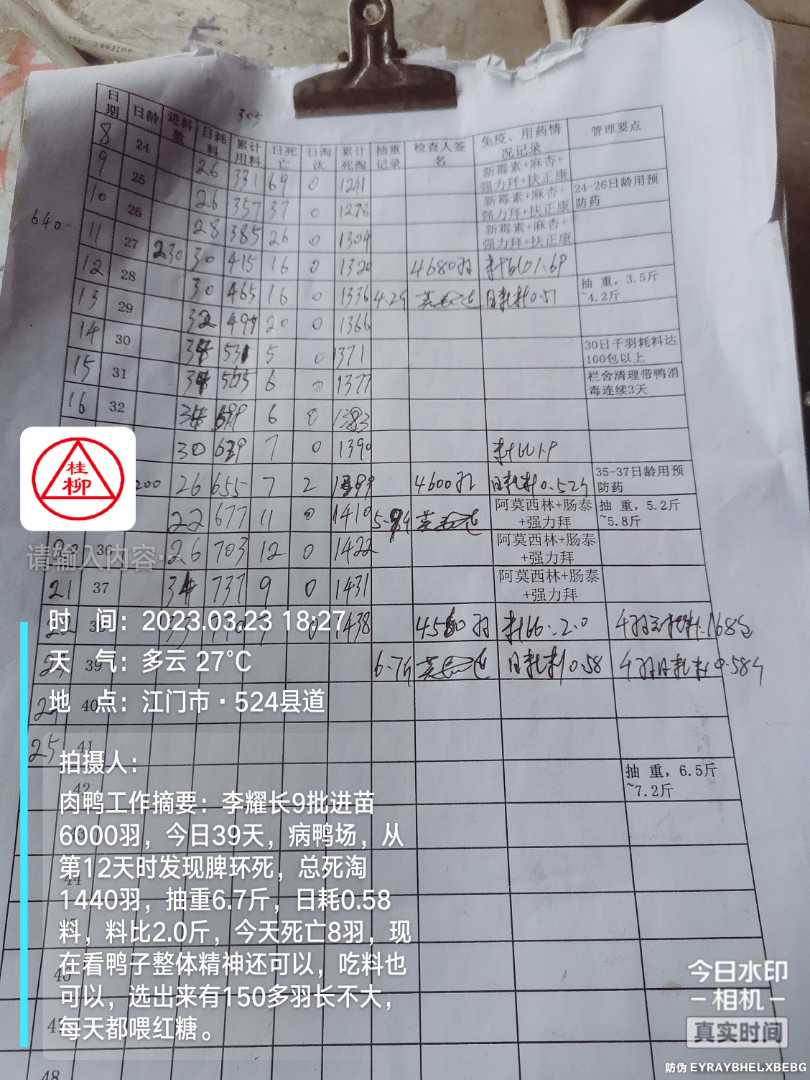 305
日期 日龄 进料数 日耗料 累计用料 日死亡 日淘汰 累计死淘 抽重记录 检查人签名 免疫、用药情况记录 管理要点
8 24 26 331 69 0 1241 新霉素+麻杏+强力拜+扶正康
9 25 26 357 37 0 1278 新霉素+麻杏+强力拜+扶正康 24-26日龄用预防药
640
10 26 28 385 26 0 1304 新霉素+麻杏+强力拜+扶正康
11 27 230 30 415 16 0 1320 4680羽 料比1.69
12 28 30 465 16 0 1336 4.2斤 日耗料0.51 抽重,3.5斤~4.2斤
13 29 32 20 0 1366
14 30 34 531 5 0 1371 30日千羽耗料达100包以上
15 31 34 565 6 0 1377 栏舍清理带鸭消毒连续3天
16 32 34 6 0 1383
30 7 0 1390 料比1.9
200 26 655 7 2 4600羽 日耗料0.52斤 35-37日龄用预防药
22 677 11 0 1410 阿莫西林+肠泰+强力拜 抽重,5.2斤~5.8斤
26 703 12 0 1422 阿莫西林+肠泰+强力拜
21 37 34 737 9 0 1431 阿莫西林+肠泰+强力拜
0 1438 料比:2.0
39 6.7斤 日耗料0.58
40
25 41
抽重,6.5斤~7.2斤
48
桂柳
请输入内容
时 间:2023.03.23 18:27
天 气:多云 27℃
地 点:江门市·524县道
拍摄人:
肉鸭工作摘要:李耀长9批进苗
6000羽,今日39天,病鸭场,从
第12天时发现脾环死,总死淘
1440羽,抽重6.7斤,日耗0.58
料,料比2.0斤,今天死亡8羽,现
在看鸭子整体精神还可以,吃料也
可以,选出来有150多羽长不大,
每天都喂红糖。
今日水印
-相机-
真实时间
防伪 EYRAYBHELXBEBG